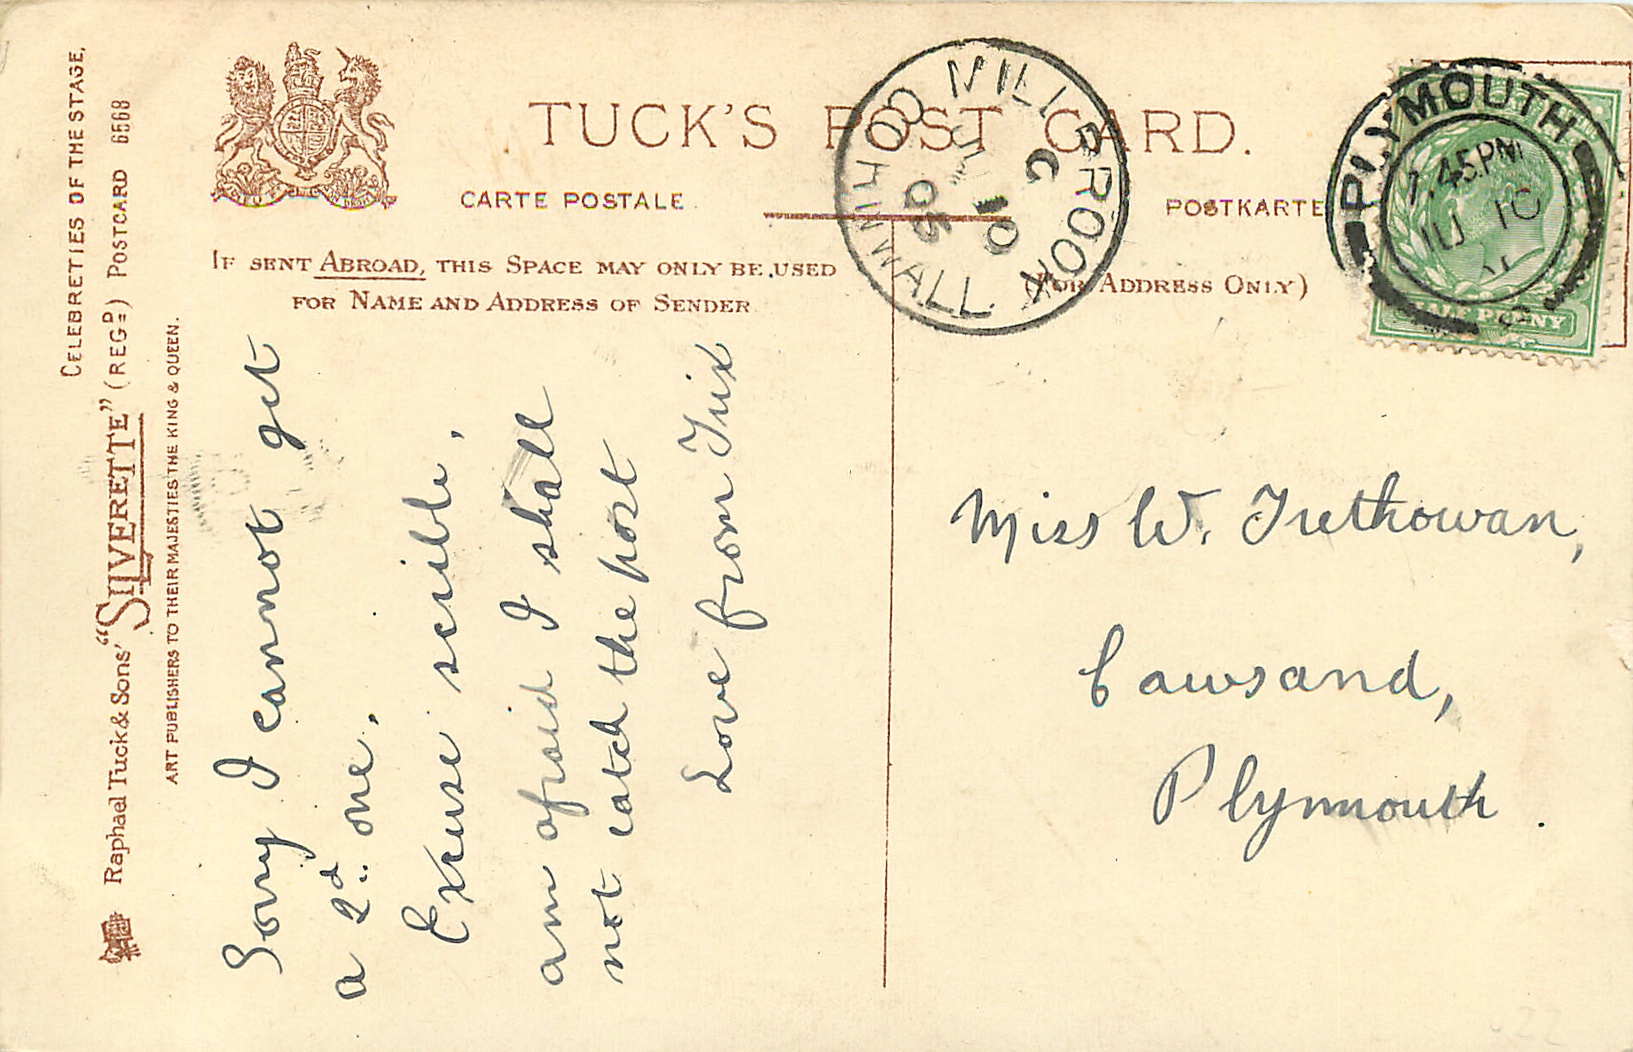 CELEBRETIES OF THE STAGE.
Raphael Tuck & Sons' "SILVERETTE" (REGD) POSTCARD 6568
ART PUBLISHERS TO THEIR MAJESTIES THE KING & QUEEN.
TUCK'S POST CARD.
CARTE POSTALE
POSTKARTE
IF SENT ABROAD, THIS SPACE MAY ONLY BE USED
FOR NAME AND ADDRESS OF SENDER
(FOR ADDRESS ONLY)
MILLBROOK
C
JU 10
05
PLYMOUTH
45 PM
JU 10
HALF PENNY
Sorry I cannot get
a 2d one.
Excuse scrible,
am afraid I shall
not catch the post
Love from Trix
Miss W. Trethowan,
Cawsand,
Plymouth.